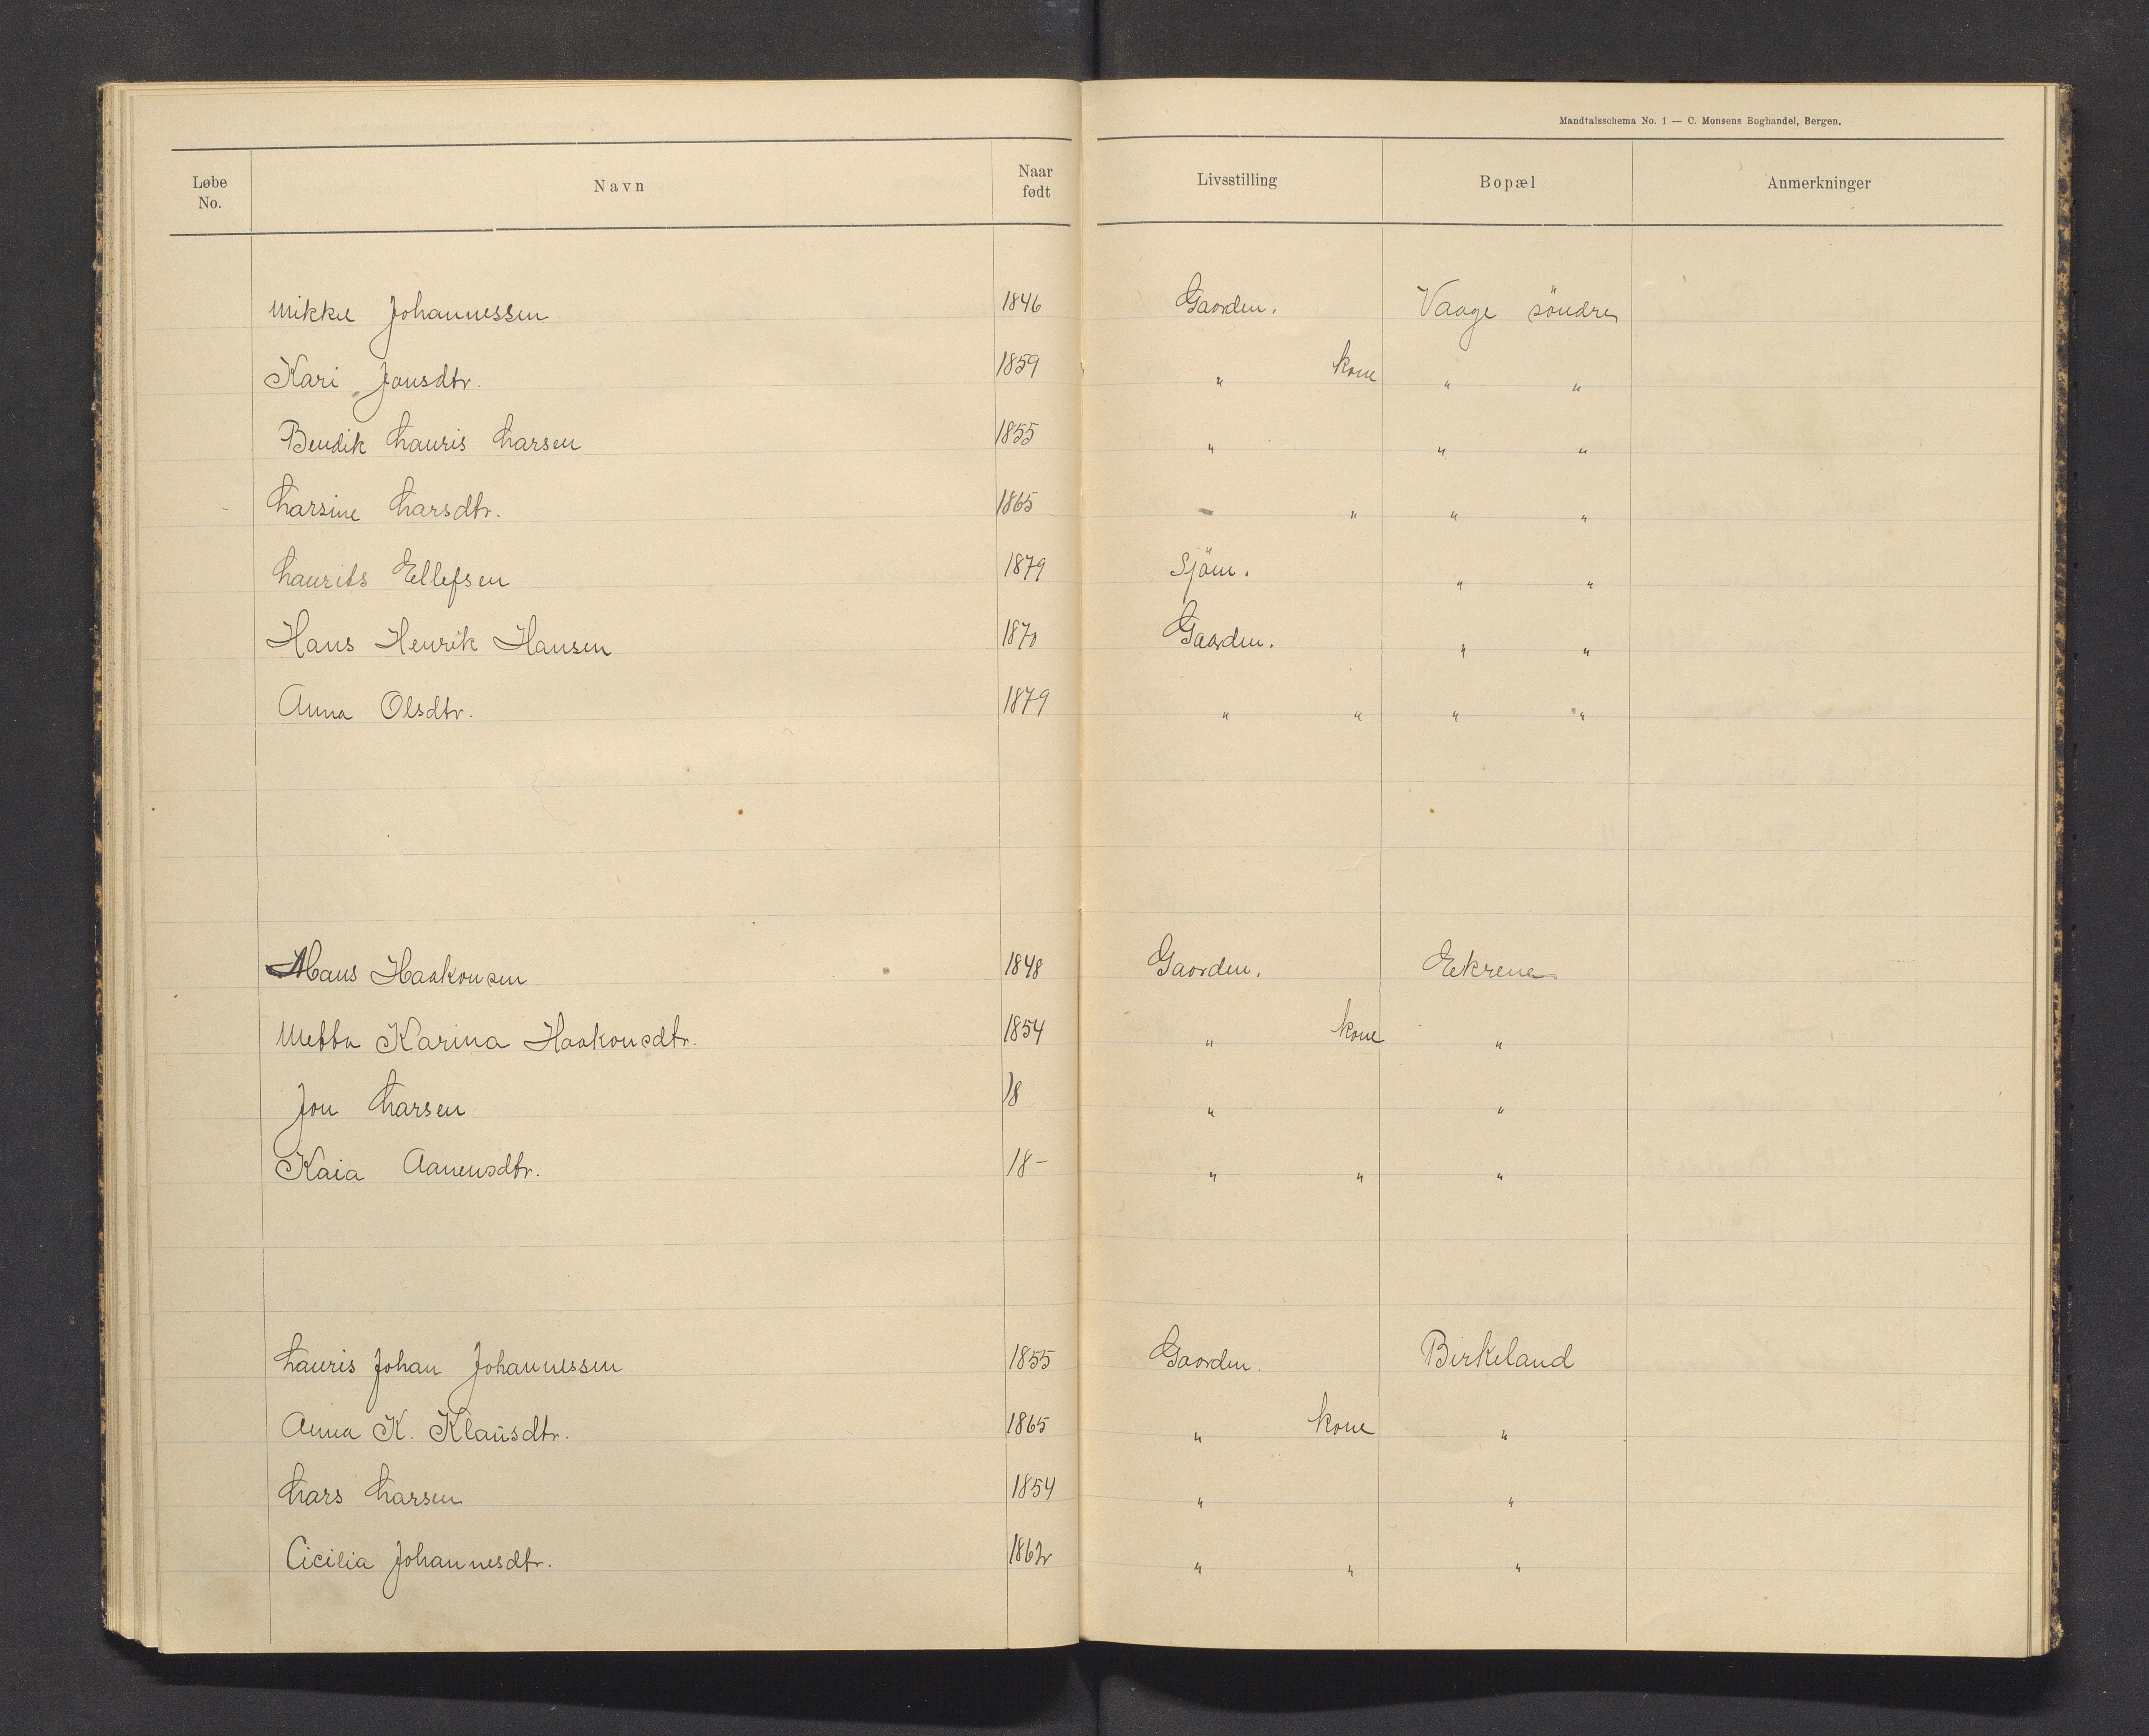 Mandtalsschema No. 1 — C. Monsens Boghandel, Bergen.
Løbe No. Navn Naar født Livsstilling Bopæl Anmerkninger
Mikkel Johannessen 1846 Gaarden. Vaage söndre
Kari Jonsdtr. 1859 " kone " "
Bendik Lauris Larsen 1855 " " "
Larsine Larsdtr. 1865 - " " "
Laurits Ellefsen 1879 Sjöm. " "
Hans Henrik Hansen 1870 Gaarden. " "
Anna Olsdtr. 1879 " " " "
Hans Haakonsen 1848 Gaarden. Eekrene
Metta Karina Haakonsdtr. 1854 " kone "
Jon Larsen 18 " "
Kaia Aanensdtr. 18- " " "
Lauris Johan Johannessen 1855 Gaarden. Birkeland
Anna K. Klausdtr. 1865 " kone "
Lars Larsen 1854 " "
Cicilia Johannesdtr. 1862 " " "